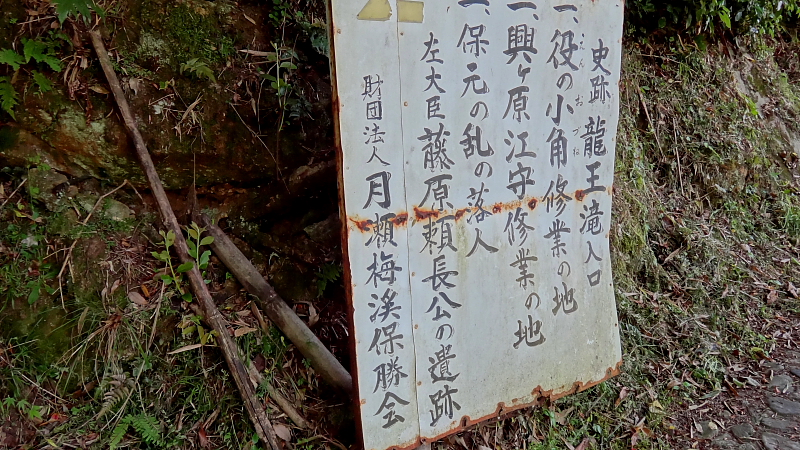 史跡 龍王滝入口
一、役の小角修業の地
えんおづね
一、興ヶ原江守修業の地
一、保元の乱の落人
左大臣藤原頼長公の遺跡
財団法人月瀬梅渓保勝会